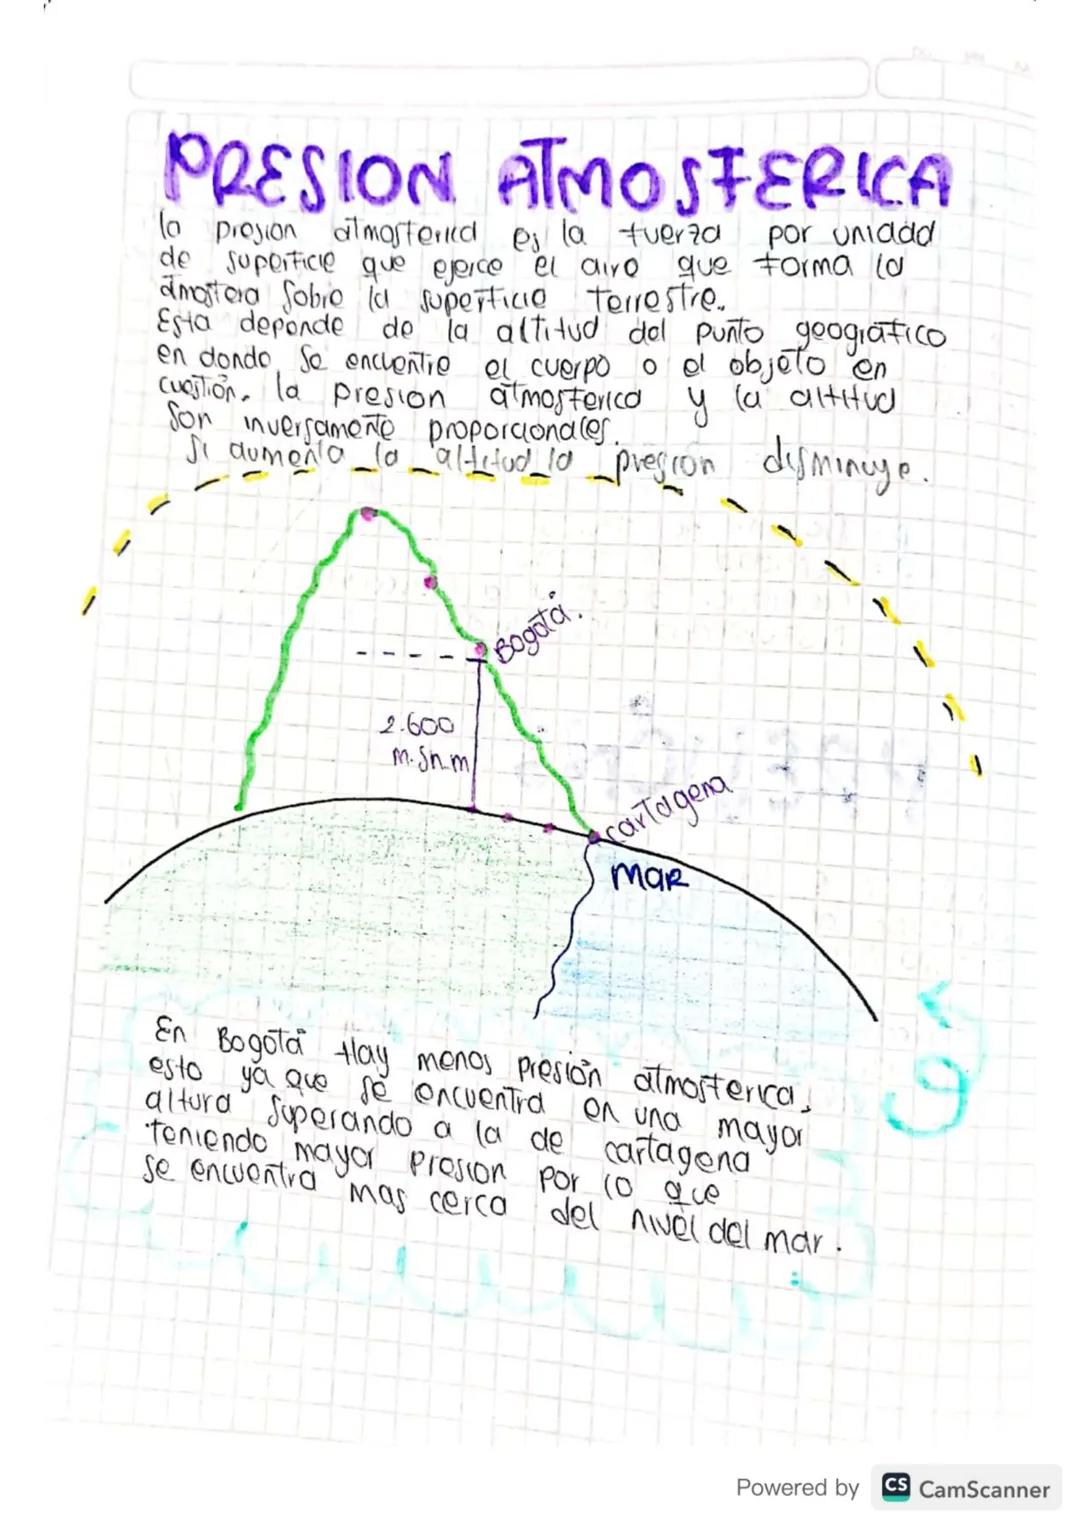 PRESION ATMOSFERICA
la presion atmosferica es la fuerza por unidad
de superficie que ejerce el aire que forma la
atmosfera sobre la superficie Terrestre.
Esta depende de la altitud del punto geografico
en donde se encuentre el cuerpo o el objeto en
cuestion. la presion atmosferica y la altitud
son inversamente proporcionales.
Si aumenta la altitud la presion disminuye.
Bogotá.
2.600
m.s.n.m
cartagena
MAR
En Bogotá Hay menos presión atmosferica,
esto ya que se encuentra en una mayor
altura superando a la de cartagena
teniendo mayor presion por lo que
se encuentra mas cerca del nivel del mar.
Powered by CS CamScanner